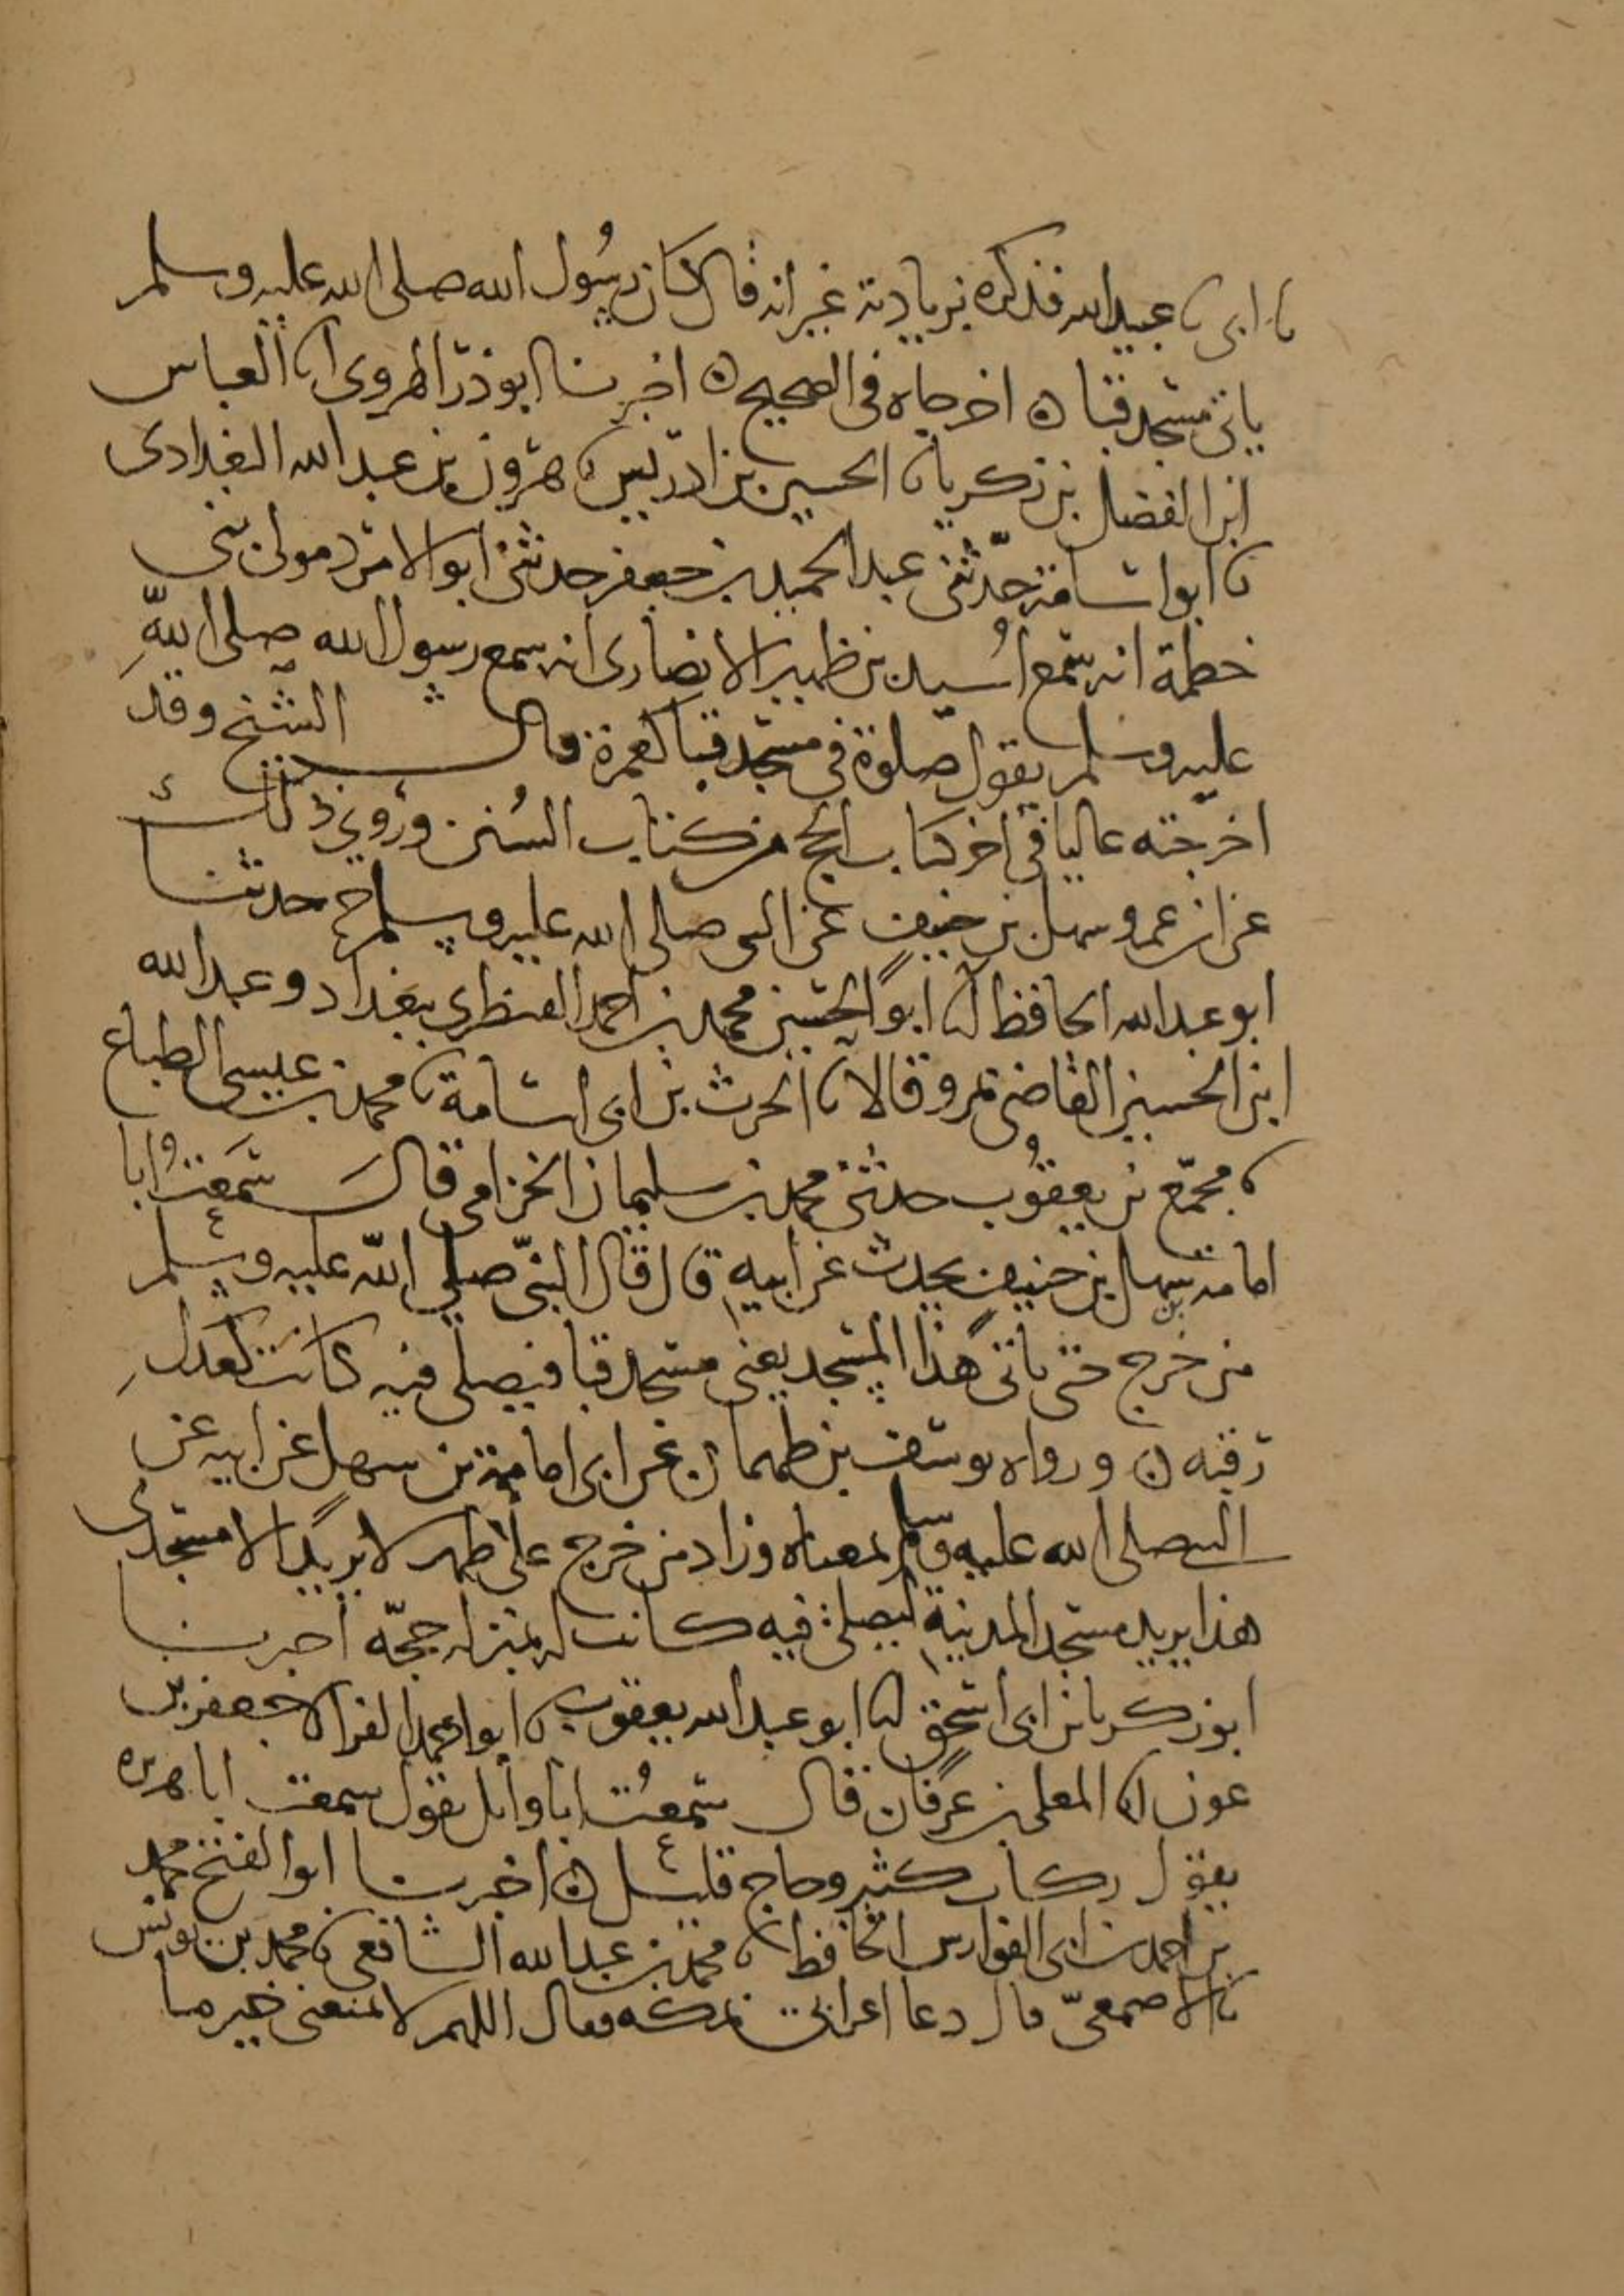 نا ابى نا عبيد الله فذكره بزيادته غير انه قال كان رسول الله صلى الله عليه وسلم
ياتى مسجد قبا ه اخرجاه فى الصحيح ه اخبرنا ابو ذر الهروى انا العباس
ابن الفضل بن زكريا نا الحسين بن ادريس نا هرون بن عبد الله البغدادى
نا ابو اسامة حدّثنى عبد الحميد بن جعفر حدثنى ابو الابرد مولى بنى
خطمة انه سمع اُسيد بن ظهير الانصارى انه سمع رسول الله صلى اللّهِ
عليه وسلم يقول صلوة فى مسجد قبا كعمرة قال الشيخ وقد
اخرجته عاليا فى اخر كتاب الحج من كتاب السُنن وروى ذلك
عن ابن عمر وسهل بن حنيف عن النبى صلى الله عليه وسلم ح حدثنا
ابو عبد الله الحافظ انا ابو الحسين محمد بن احمد القنطرى ببغداد وعبد الله
ابن الحسين القاضى بمرو قالا نا الحرث بن ابى اسامة نا محمد بن عيسى الطباع
نا مجمّع بن يعقُوب حدثنى محمد بن سليمان الخزامى قال سَمعتُ ابا
امامة بن سهل بن حنيف يحدث عن ابيه قال قال النبىّ صلى اللّه عليه وسلم
من خرج حتى ياتى هذا المسجد يعنى مسجد قبا فيصلى فيه كانت كعدل
رقبه ه ورواه يوسف بن طهمان عن ابى امامة بن سهل عن ابيه عن
النبى صلى الله عليه وسلم بمعناه وزاد من خرج على طهر لا يريد الا مسجدى
هذا يريد مسجد المدينة ليصلى فيه كانت له بمنزلة حجّة اخبرنا
ابو زكريا بن ابى اسحق انا ابو عبد الله بن يعقوب نا ابو احمد الفرا انا جعفر بن
عون انا المعلى بن عرفان قال سمعُت ابا وائل يقول سمعت ابا هريره
يقول ركاب كثير وحاج قليل ه اخبرنا ابو الفتح محمد
بن احمد بن ابى الفوارس الحافظ نا محمد بن عبد الله الشافعى نا محمد بن يونس
نا الاصمعىّ قال دعا اعرابى بمكه فقال اللهم لا تمنعنى خير ما